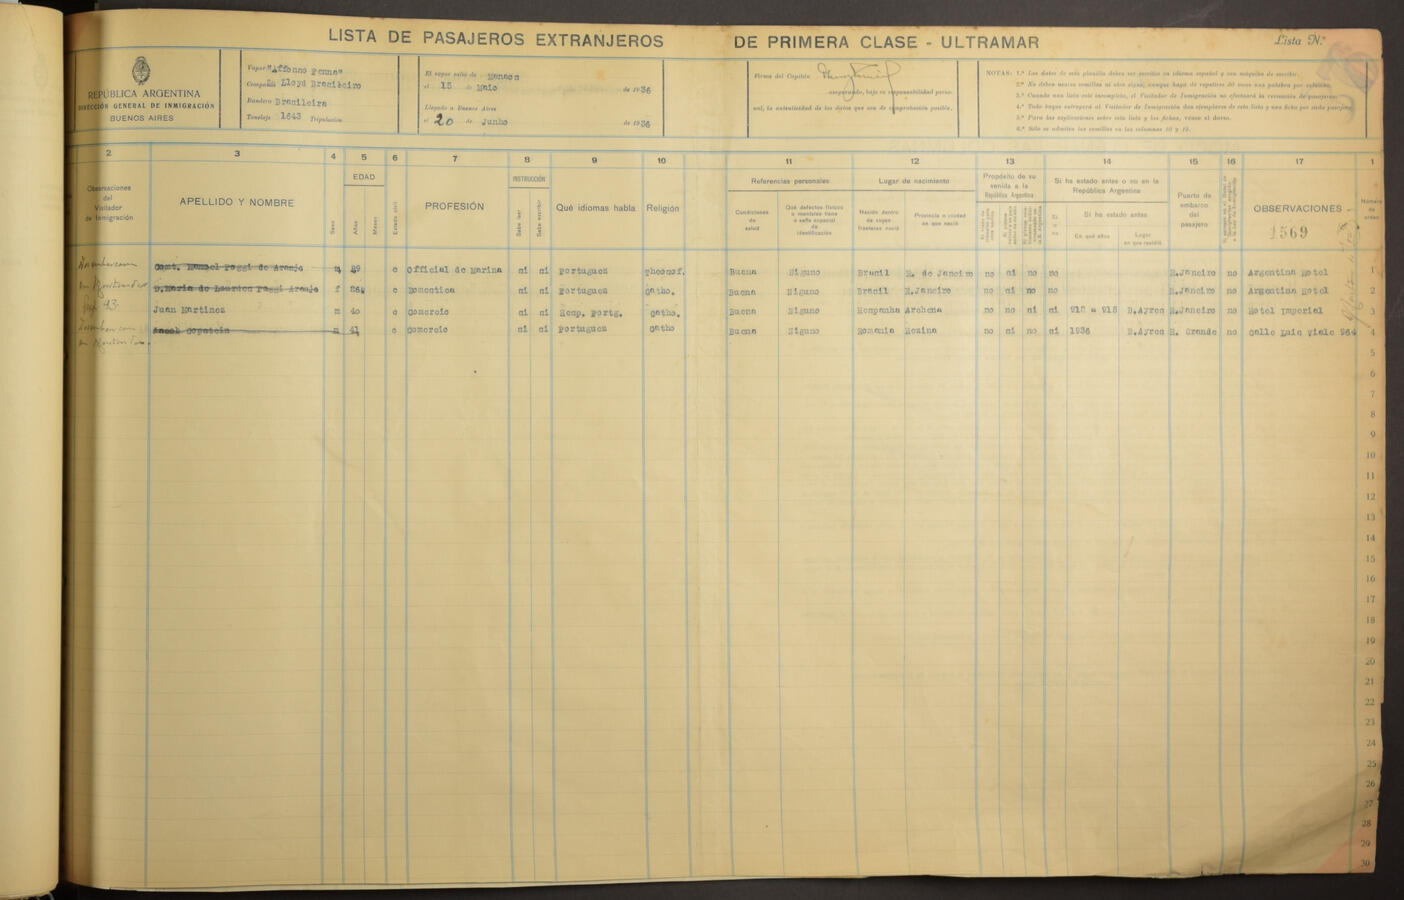 LISTA DE PASAJEROS EXTRANJEROS DE PRIMERA CLASE - ULTRAMAR
Lista N.º
REPÚBLICA ARGENTINA
DIRECCIÓN GENERAL DE INMIGRACIÓN
BUENOS AIRES
Vapor "Affonso Penna"
Compañía Lloyd Brasileiro
Bandera Brasileira
Tonelaje 1643 Tripulación
El vapor salió de Manaos
el 15 de Maio de 1936
Llegado a Buenos Aires
el 20 de Junho de 1936
Firma del Capitán
asegurando, bajo su responsabilidad perso-
nal, la autenticidad de los datos que son de comprobación posible.
NOTAS: 1.ª Los datos de esta planilla deben ser escritos en idioma español y con máquina de escribir.
2.ª No deben usarse comillas ni otro signo, aunque haya de repetirse del mismo una palabra por columna.
3.ª Cuando una lista esté incompleta, el Visitador de Inmigración no efectuará la recepción de pasajeros.
4.ª Todo buque entregará al Visitador de Inmigración dos ejemplares de esta lista y una ficha por cada pasajero.
5.ª Para las explicaciones sobre esta lista y las fichas, véase al dorso.
6.ª Sólo se admiten las comillas en las columnas 10 y 15.
2 3 4 5 6 7 8 9 10 11 12 13 14 15 16 17 1
Observaciones del Visitador de Inmigración
APELLIDO Y NOMBRE
Sexo
EDAD
Años
Meses
Estado civil
PROFESIÓN
INSTRUCCIÓN
Sabe leer
Sabe escribir
Qué idiomas habla
Religión
Referencias personales
Condiciones de salud
Qué defectos físicos o mentales tiene o seña especial de identificación
Lugar de nacimiento
Nación dentro de cuyas fronteras nació
Provincia o ciudad en que nació
Propósito de su venida a la República Argentina
Si ha estado antes o no en la República Argentina
Si ha estado antes
En qué años
Lugar en que residió
Puerto de embarco del pasajero
OBSERVACIONES
1569
Número de orden
Comt. Manoel Poggi de Araujo m 29 c Official de Marina si si Portuguez Theosof. Buena Niguno Brasil R. de Janeiro no si no no R.Janeiro no Argentina Hotel 1
D.Maria de Lourdes Poggi Araujo f 26 c Domestica si si Portuguez Catho. Buena Niguno Brasil R.Janeiro no si no no R.Janeiro no Argentina Hotel 2
93
Juan Martinez m 40 c Comercio si si Hesp. Portg. Catho. Buena Niguno Hespanha Archena no no si si 912 a 918 B.Ayres R.Janeiro no Hotel Imperial 3
m 41 c Comercio si si Portuguez Catho Buena Niguno Romania no si no si 1936 B.Ayres R. Grande no calle Luis Viale 964 4
5
6
7
8
9
10
11
12
13
14
15
16
17
18
19
20
21
22
23
24
25
26
27
28
29
30